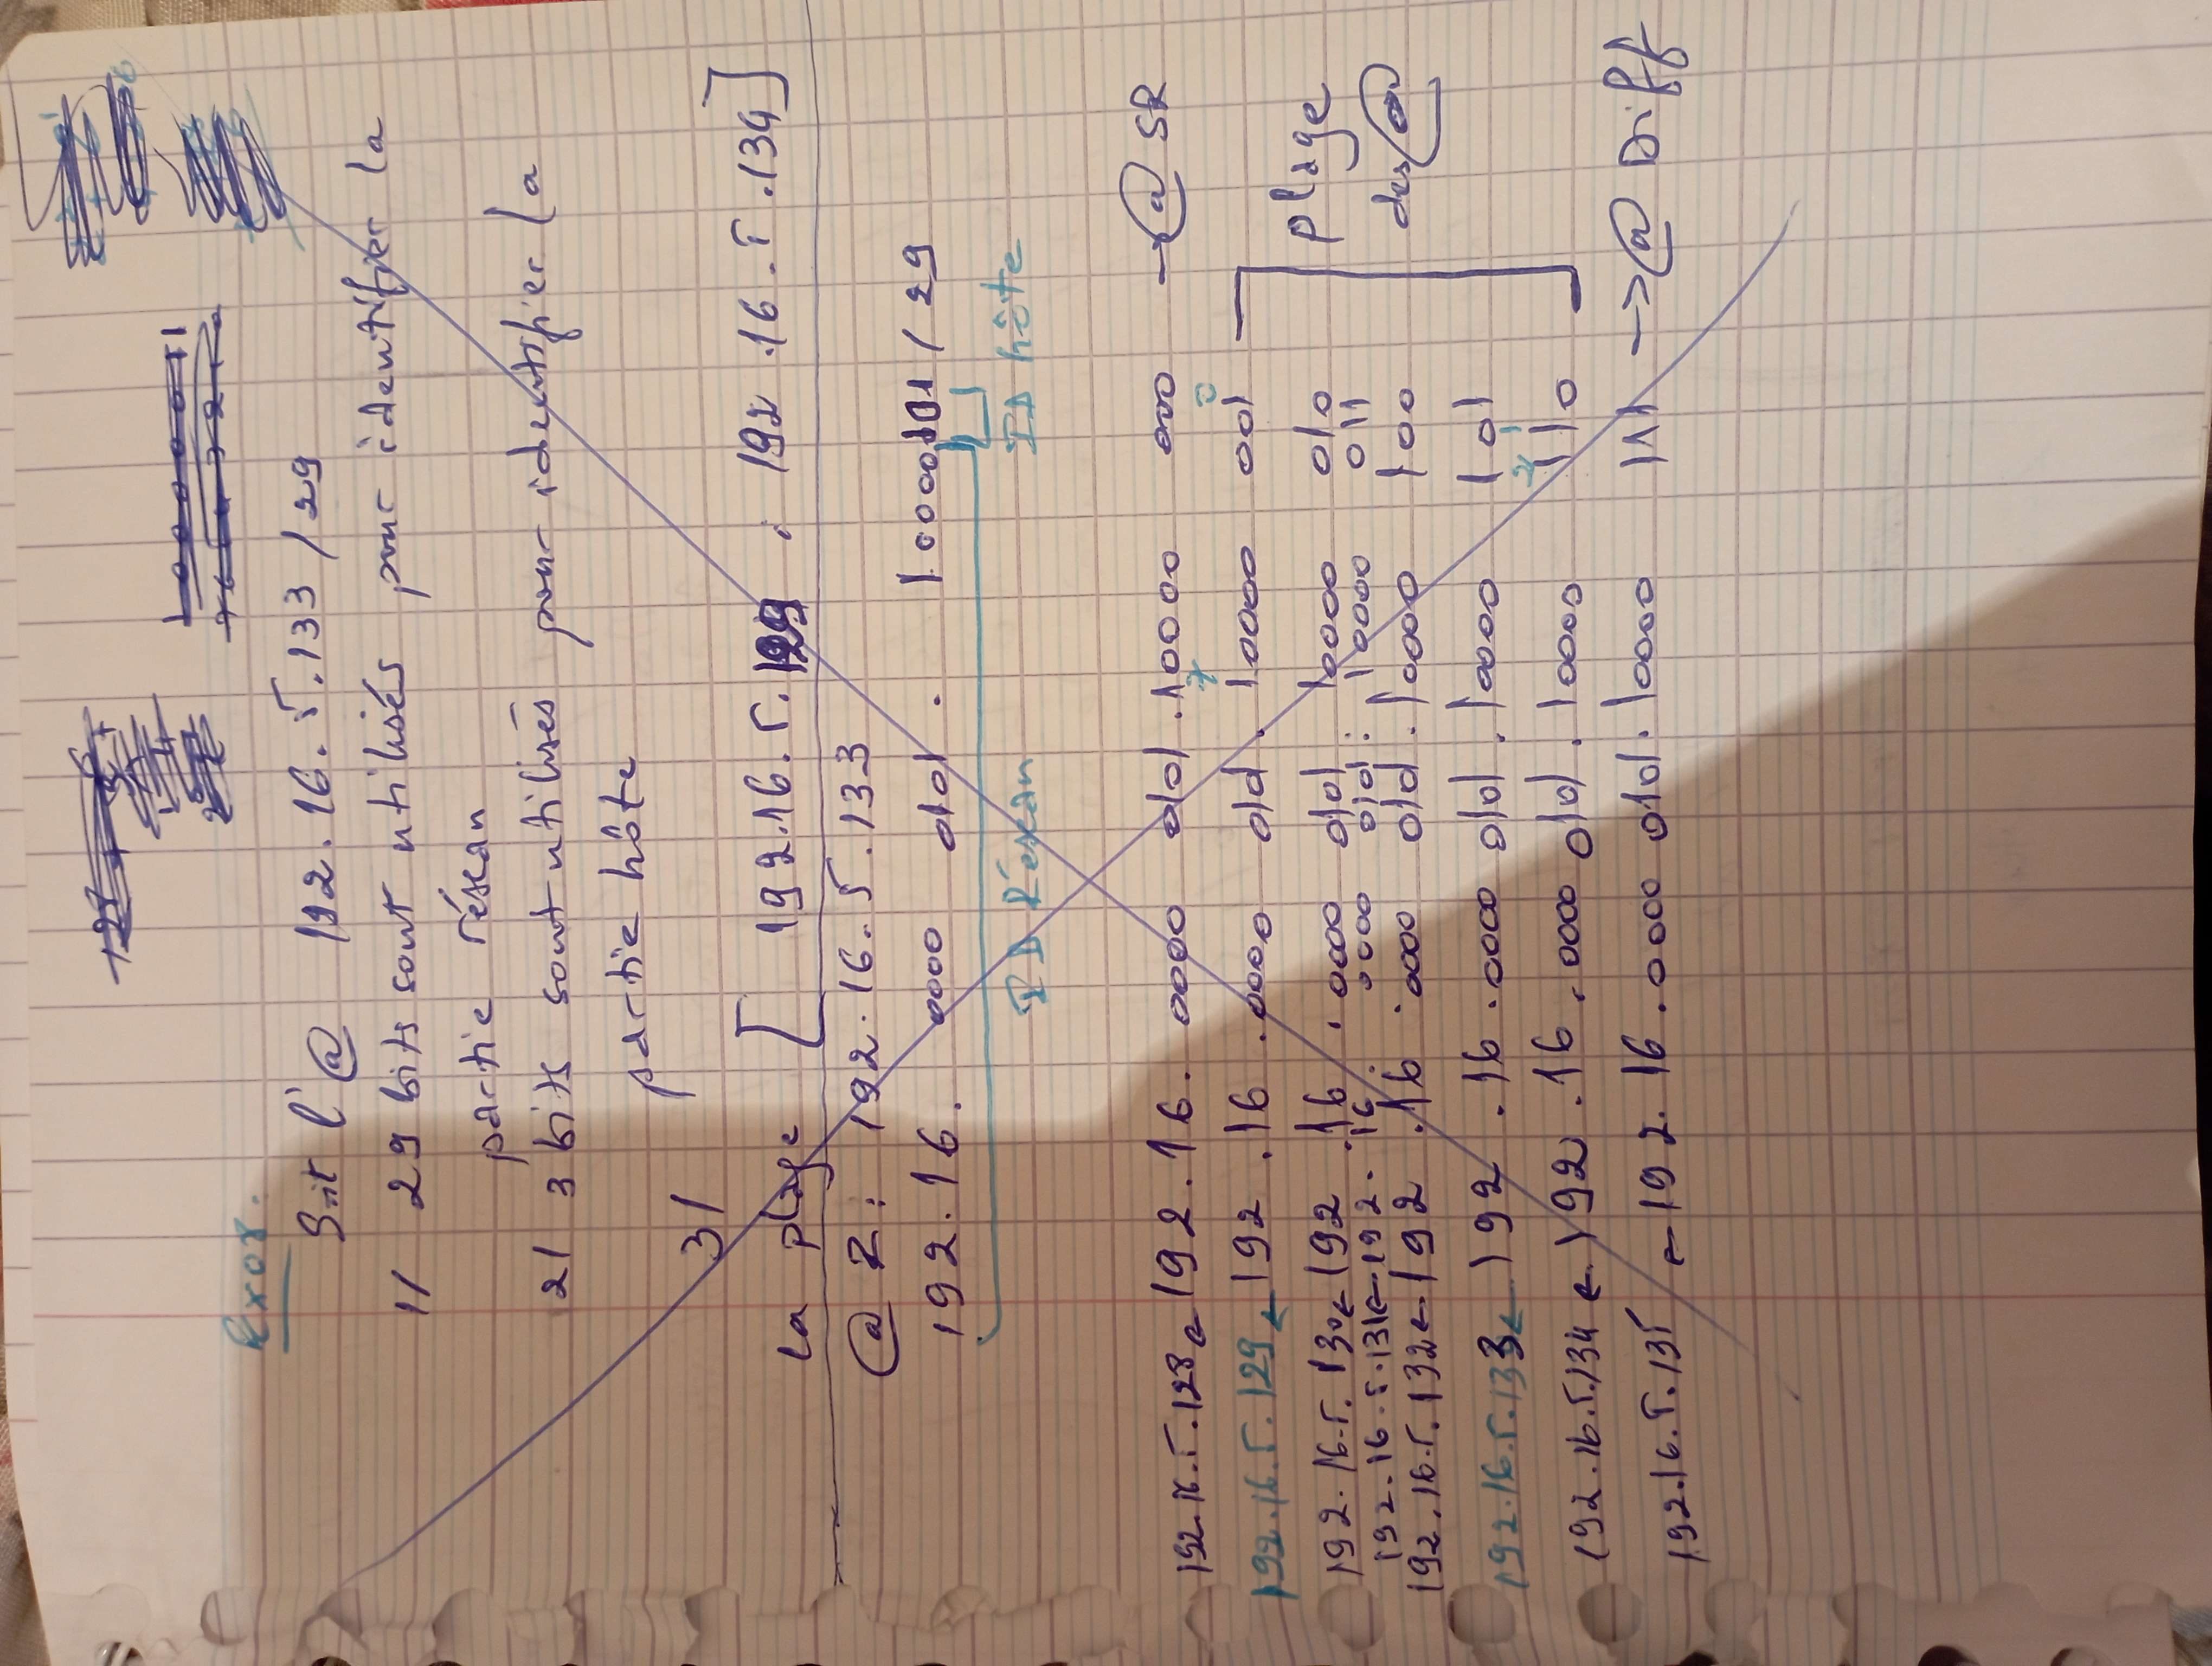 Exo8.
Soit l'@ 192.16.5.133 / 29
1/ 29 bits sont utilisés pour identifier la
partie réseau
2/ 3 bits sont utilisés pour identifier la
partie hôte
3/
La plage [ 192.16.5.129 ; 192.16.5.134]
@ 2 : 192.16.5.133
192.16. 0000 0101 . 10000101 / 29
ID Réseau ID hôte
192.16.5.128 ← 192.16. 0000 0101 .10000 000 → @ SR
7 0
192.16.5.129 ← 192.16 .0000 0101 . 10000 001
192.16.5.130 ← 192.16 .0000 0101 10000 010 plage
192.16.5.131 ← 192.16. 0000 0101 . 10000 011
192.16.5.132 ← 192.16 .0000 0101. 10000 100 des @
192.16.5.133 ← 192.16 .0000 0101. 10000 101
2 1
192.16.5.134 ← 192.16 .0000 0101. 10000 110
192.16.5.135 ← 192.16 .0000 0101. 10000 111 → @ Diff